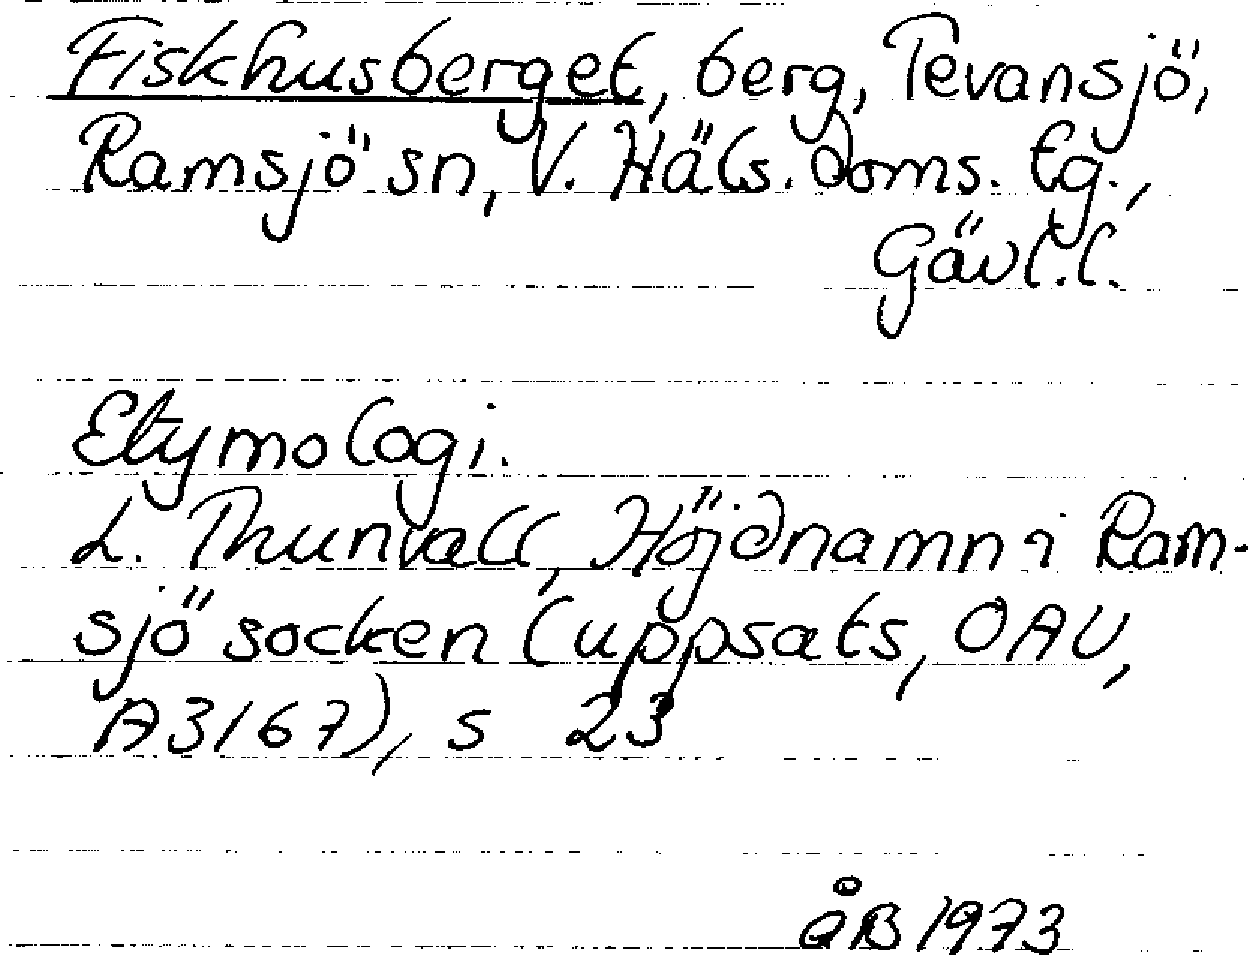 Fiskhusberget, berg, Tevansjö,
Ramsjö sn, V. Häls. doms. tg.,
Gävl. l.
Etymologi.
L. Thunvall, Höjdnamn i Ram-
sjö socken (uppsats, OAU,
A3167), s 23
åB 1973